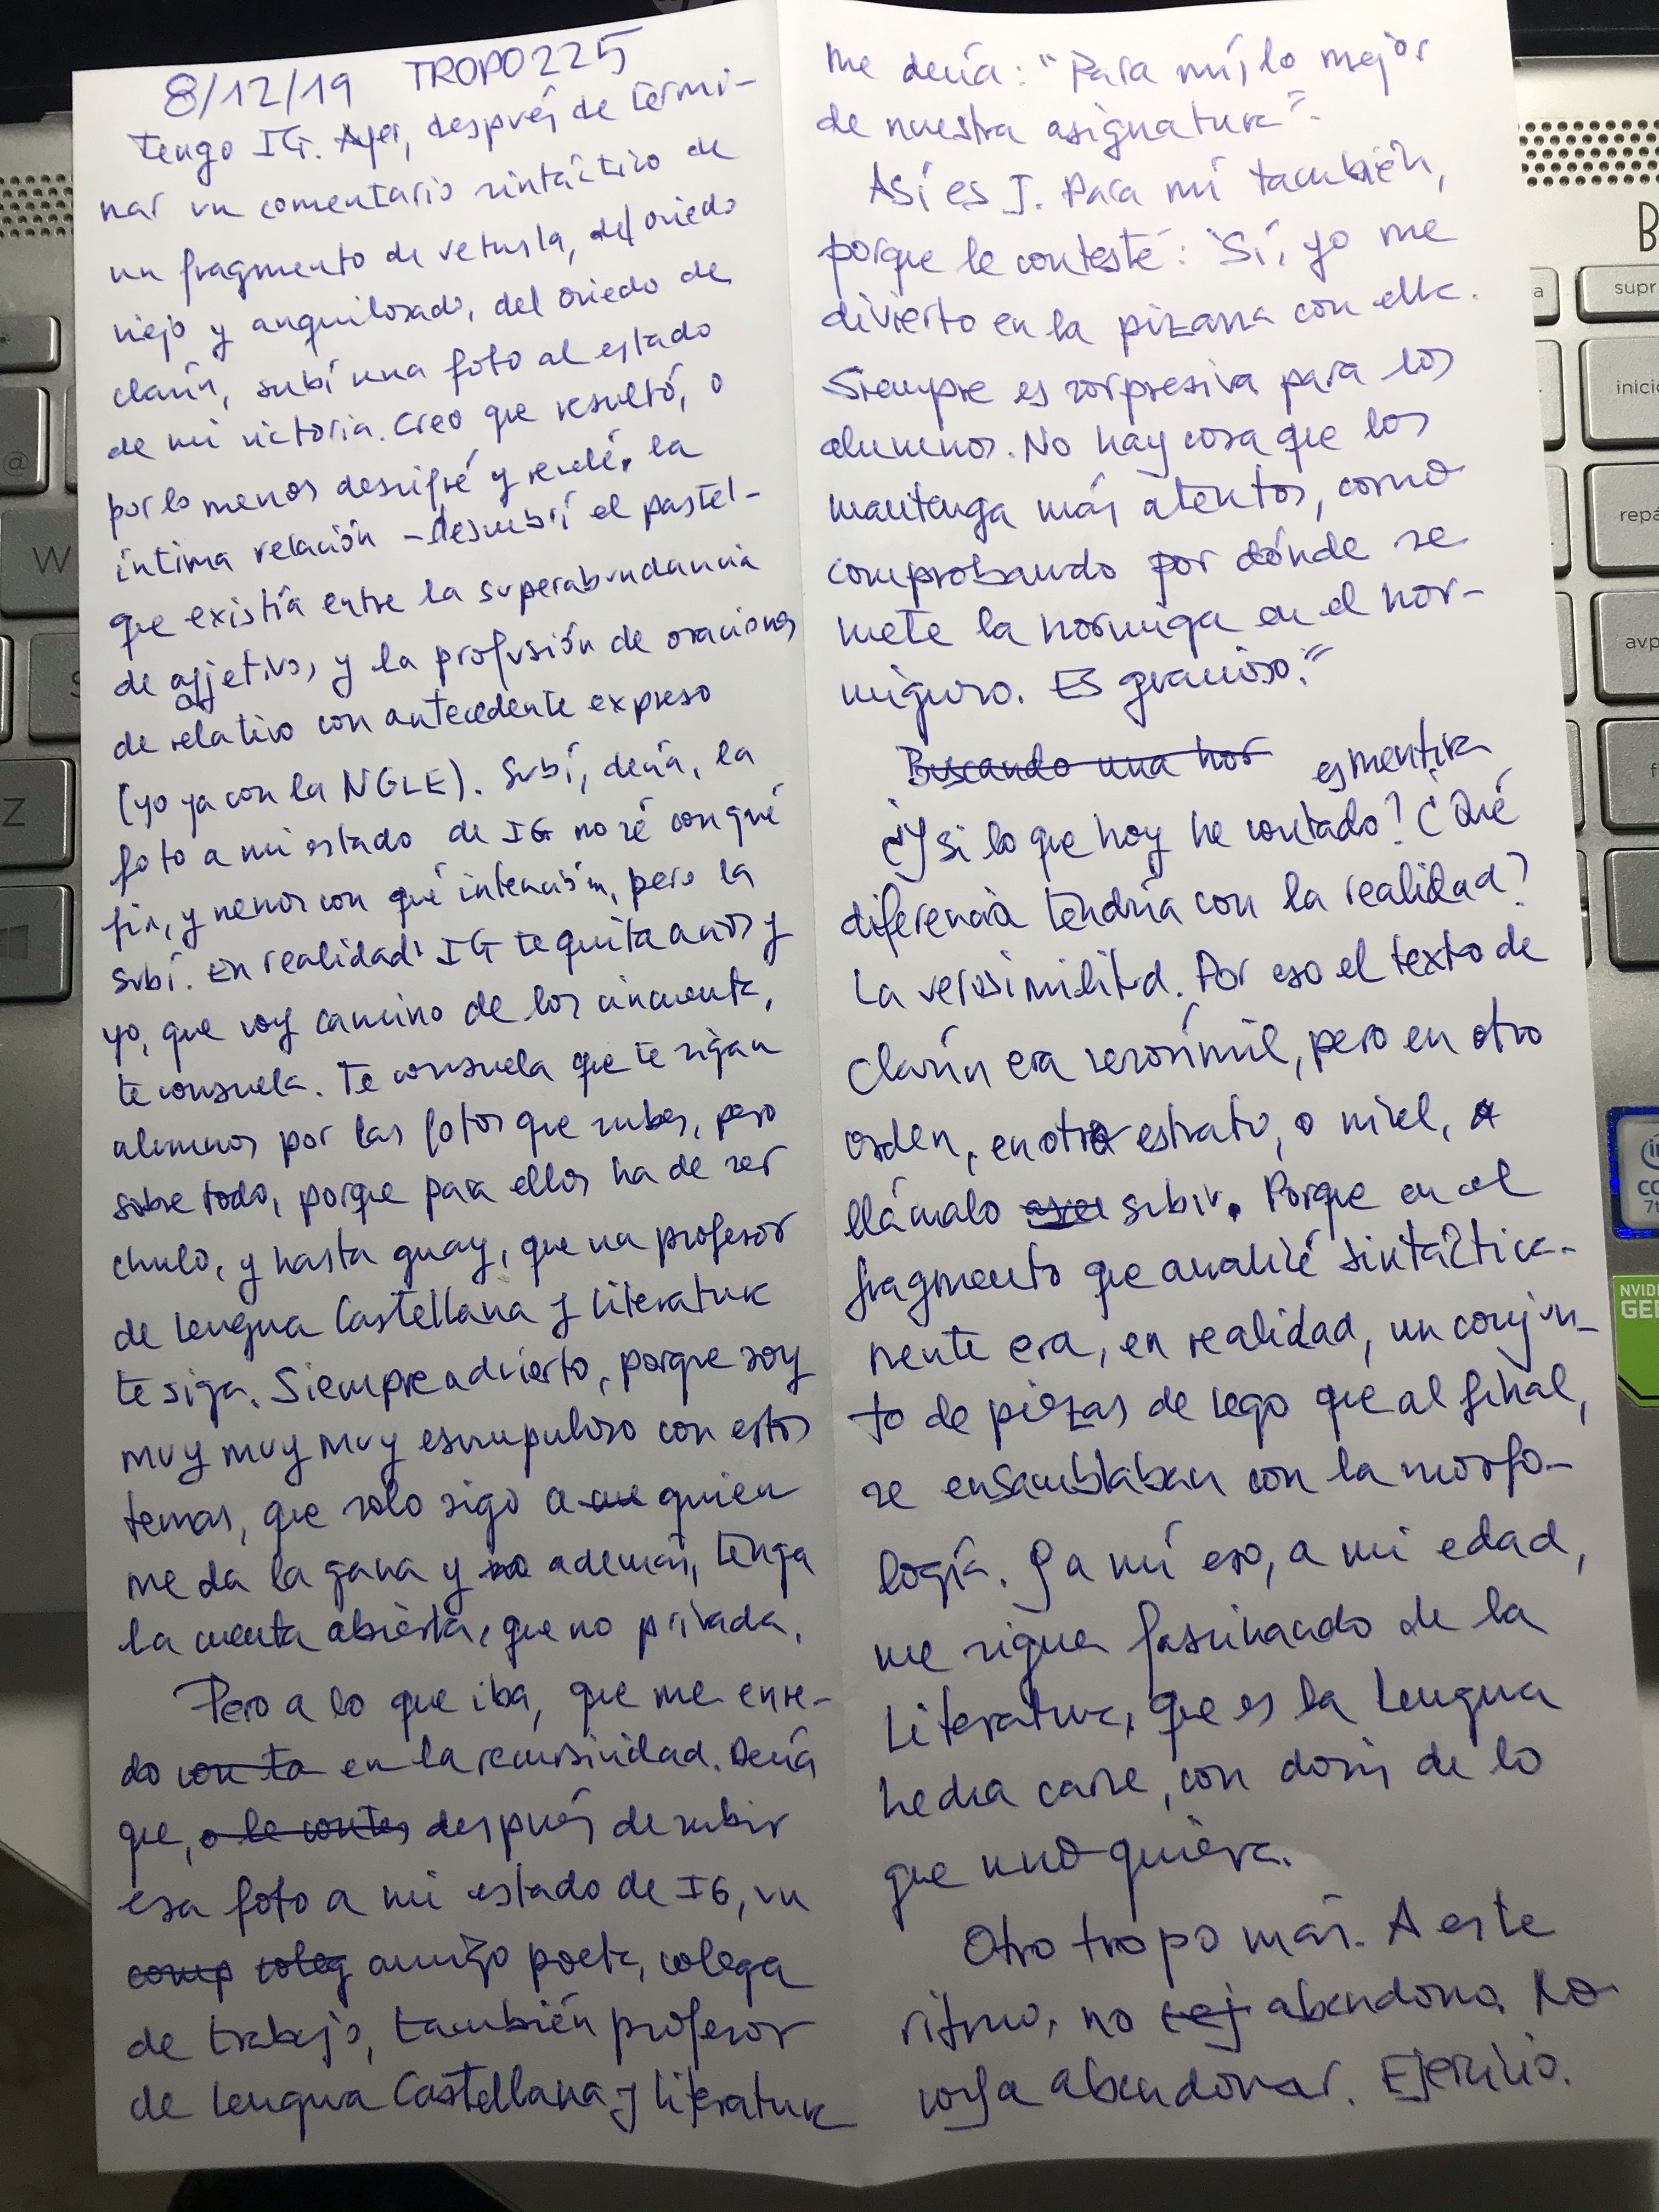 8/12/19 TROPO 225
Tengo IG. Ayer, después de termi-
nar un comentario sintáctico de
un fragmento de vetusta, del oviedo
viejo y anquilosado, del oviedo de
clarín, subí una foto al estado
de mi victoria. Creo que resultó, o
por lo menos descifré y revelé, la
íntima relación -descubrí el pastel-
que existía entre la superabundancia
de adjetivos, y la profusión de oraciones
de relativo con antecedente expreso
(yo ya con la NGLE). Subí, decía, la
foto a mi estado de IG no sé con qué
fin, y menos con qué intención, pero la
subí. En realidad IG te quita años y
yo, que voy camino de los cincuenta,
te consuela. Te consuela que te sigan
alumnos por las fotos que subes, pero
sobre todo, porque para ellos ha de ser
chulo, y hasta guay, que un profesor
de Lengua Castellana y Literatura
te siga. Siempre advierto, porque soy
muy muy muy escrupuloso con estos
temas, que solo sigo a quien
me da la gana y además, tenga
la cuenta abierta, que no privada.
Pero a lo que iba, que me enre-
do con ta en la recursividad. Decía
que, o le contes después de subir
esa foto a mi estado de IG, un
comp coleg amigo poeta, colega
de trabajo, también profesor
de Lengua Castellana y Literatura
me decía: "Para mí, lo mejor
de nuestra asignatura".
Así es J. Para mí también,
porque le contesté: "Sí, yo me
divierto en la pizarra con ella.
Siempre es sorpresiva para los
alumnos. No hay cosa que los
mantenga más atentos, como
comprobando por dónde se
mete la hormiga en el hor-
miguero. Es gracioso."
Buscando una hor es mentira
¿Y si lo que hoy he contado? ¿Qué
diferencia tendría con la realidad?
La verosimilitud. Por eso el texto de
Clarín era verosímil, pero en otro
orden, en otro estrato, o nivel,
llámalo subir. Porque en el
fragmento que analicé sintáctica-
mente era, en realidad, un conjun-
to de piezas de lego que al final,
se ensamblaban con la morfo-
logía. Y a mí eso, a mi edad,
me sigue fascinando de la
Literatura, que es la Lengua
hecha carne, con dosis de lo
que uno quiera.
Otro tropo más. A este
ritmo, no tej abandono. No
voy a abandonar. Ejercicio.
W
Z
@
B
supr
inicio
repá
avp
NVID
GEF